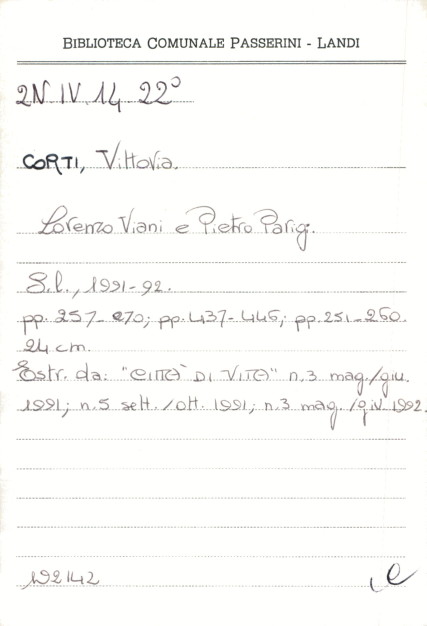 BIBLIOTECA COMUNALE PASSERINI - LANDI
2N IV 14 22°
CORTI, Vittoria.
Lorenzo Viani e Pietro Parigi.
S.l., 1991-92.
pp. 257-270; pp. 437-446; pp. 251-260.
24 cm.
Estr. da: "CITTÀ DI VITA" n.3 mag./giu.
1991; n.5 sett./ott. 1991; n.3 mag./giu. 1992.
192142